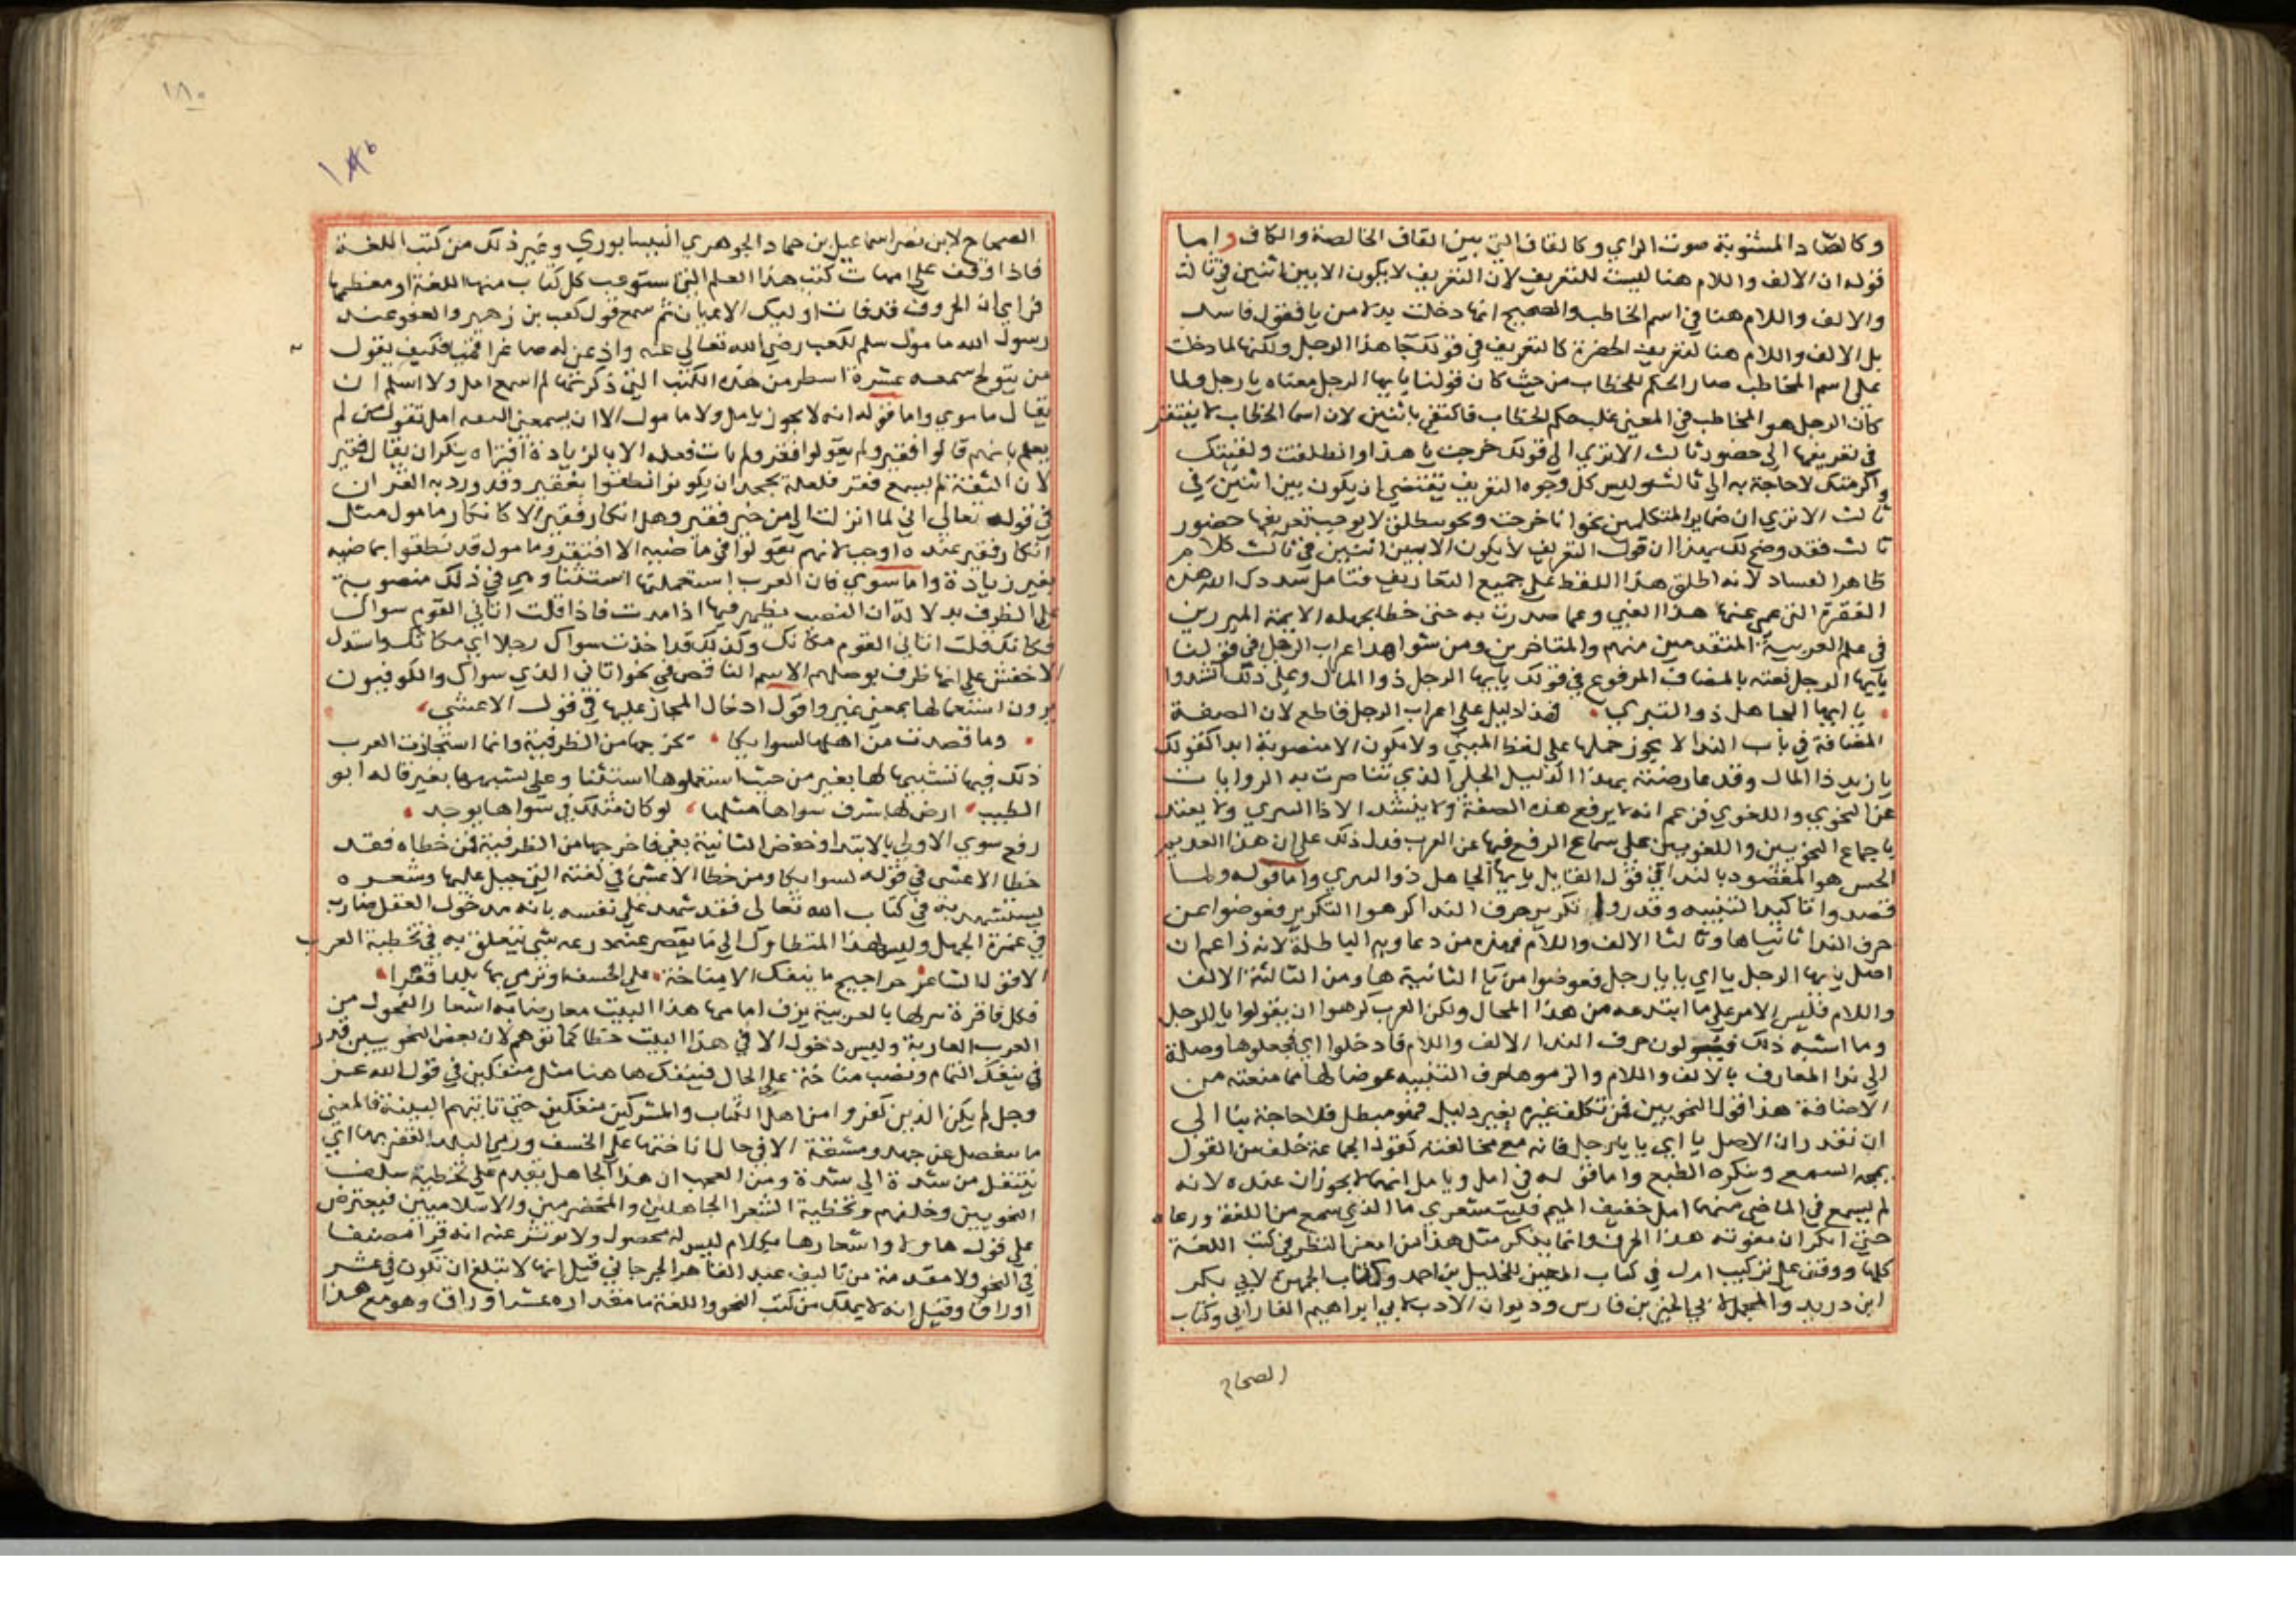 وكالصاد المشوبة صوت الزاي وكالقاف التي بين القاف الخالصة والكاف واما
قوله ان الالف واللام هنا ليست للتعريف لان التعريف لا يكون الا بين اثنين في ثالث
والالف واللام هنا في اسم المخاطب والصحيح انها دخلت بدلا من يا فقول فاسد
بل الالف واللام هنا لتعريف الحضرة كالتعريف في قولك جا هذا الرجل ولكنها لما دخلت
على اسم المخاطب صار الحكم للخطاب من حيث كان قولنا يايها الرجل معناه يا رجل ولما
كان الرجل هو المخاطب في المعنى غلب حكم الخطاب فاكتفي باثنين لان اسما الخطاب لا يفتقر
في تعريفها الى حضور ثالث الا تري الى قولك خرجت يا هذا وانطلقت ولقيتك
واكرمتك لا حاجة به الى ثالث وليس كل وجوه التعريف تقتضي ان يكون بين اثنين في
ثالث الا تري ان ضماير المتكلمين نحو انا خرجت ونحن منطلق لا يوجب تعريفها حضور
ثالث فقد وضح لك بهذا ان قوله التعريف لا يكون الا بين اثنين في ثالث كلام
ظاهر الفساد لانه اطلق هذا اللفظ على جميع التعاريف فتامل سددك الله هذه
الفقرة التي عمي عنها هذا الغبي وعما صدرت به حتى خطا بجهله الايمة المبرزين
في علم العربية المتقدمين منهم والمتاخرين ومن شواهد اعراب الرجل في قولنا
يايها الرجل نعته بالمضاف المرفوع في قولك يايها الرجل ذو المال وعلى ذلك انشدوا
يا ايها الجاهل ذو التبري فهذا دليل على اعراب الرجل قاطع لان الصفة
المضافة في باب الندا لا يجوز حملها على لفظ المبني ولا تكون الا منصوبة ابدا كقولك
يا زيد ذا المال وقد عارضته بهذا الدليل الجلي الذي تناصرت به الروايات
عن النحوي واللغوي فزعم انه لا يرفع هذه الصفة ولا ينشد الا ذا السري ولا يعتد
باجماع النحويين واللغويين على سماع الرفع فيها عن العرب فدل ذلك على ان هذا العديم
الحس هو المقصود بالندا في قول القايل يايها الجاهل ذو السري واما قوله ولما
قصدوا تاكيد التنبيه وقدروا تكرير حرف الندا كرهوا التكرير فعوضوا عن
حرف الندا ثانيا ها وثالثا الالف واللام فهذه من دعاويه الباطلة لانه زاعم ان
اصل يايها الرجل يا اي يا يا رجل فعوضوا من يا الثانية ها ومن الثالثة الالف
واللام فليس الامر على ما ابتدعه من هذا المحال ولكن العرب كرهوا ان يقولوا يا الرجل
وما اشبه ذلك فيولون حرف الندا الالف واللام فادخلوا اي فجعلوها وصلة
الى ندا المعارف بالالف واللام والزموها حرف التنبيه عوضا لها مما منعته من
الاضافة هذا قول النحويين فمن تكلف غيره بغير دليل فهو مبطل فلا حاجة بنا الى
ان نقدر ان الاصل يا اي يا يا رجل فانه مع مخالفته لقول الجماعة خلف من القول
يمجه السمع وينكره الطبع واما قوله في امل ويامل انهما لا يجوزان عنده لانه
لم يسمع في الماضي منهما امل خفيف الميم فليت شعري ما الذي سمع من اللغة ورعاه
حتى انكر ان يفوته هذا الحرف وانما ينكر مثل هذا من امعن النظر في كتب اللغة
كلها ووقف على تركيب امل في كتاب العين للخليل بن احمد وكتاب الجمهرة لابي بكر
ابن دريد والمجمل لابي الحسين بن فارس وديوان الادب لابي ابراهيم الفارابي وكتاب
الصحاح
١٨٠
الصحاح لابن نصر اسماعيل بن حماد الجوهري النيسابوري وغير ذلك من كتب اللغة
فاذا وقف على امهات كتب هذا العلم التي استوعب كل كتاب منها اللغة او معظمها
فراي ان الحروف قد فات اوليك الاعيان ثم سمع قول كعب بن زهير والعفو عند
رسول الله مامول سلم لكعب رضي الله تعالى عنه واذعن له صاغرا فكيف يقول
من يتولج سمعه عشرة اسطر من هذه الكتب التي ذكرتها لم اسمع امل ولا اسلم ان
يقال مامول واما قوله انه لا يجوز يامل ولا مامول الا ان يسمعني الثقة امل فقول من لم
يعلم بانهم قالوا فقير ولم يقولوا فقر ولم يات فعله الا بالزيادة افتراه ينكر ان يقال فقير
لان الثقة لم يسمع فقر فلعله يجحد ان يكونوا نطقوا بفقير وقد ورد به القران
في قوله تعالى اني لما انزلت الي من خير فقير وهل انكار فقير الا كانكار مامول مثل
انكار فقير عنده اوجب لانهم يقولوا في ماضيه الا افتقر ومامول قد نطقوا بماضيه
بغير زيادة واما سوي فان العرب استعملتها استثنا وهي في ذلك منصوبة
على الظرف بدلالة ان النصب يظهر فيها اذا مدت فاذا قلت اتاني القوم سواك
فكانك قلت اتاني القوم مكانك وكذلك قد اخذت سواك رجلا اي مكانك واستدل
الاخفش على انها ظرف بوصلهم الاسم الناقص في نحو اتاني الذي سواك والكوفيون
يرون استعمالها بمعنى غير واقول ادخال المجاز عليها في قول الاعشى
وما قصدت من اهلها لسوايكا تخرجها من الظرفية وانما استجازت العرب
ذلك فيها تشبيها لها بغير من حيث استعملوها استثنا وعلى تشبيهها بغير قال ابو
الطيب ارض لها شرف سواها مثلها لو كان مثلك في سواها يوجد
رفع سوي الاولى بالابتدا وخفض الثانية بفي فاخرجها من الظرفية فمن خطاه فقد
خطا الاعشى في قوله لسوايكا ومن خطا الاعشى في لغته التي جبل عليها وشعره
يستشهد به في كتاب الله تعالى فقد شهد على نفسه بانه مدخول العقل ضارب
في غمرة الجهل وليس لهذا المتطاول الى ما يقصر عنه ذرعه شي يتعلق به في تخطية العرب
الا قول الشاعر حراجيج ما ينفك الا مناخة على الخسف او نرمي بها بلدا قفرا
فكل فاقرة نزلها بالعربية يزف امامها هذا البيت معارضا به اشعار الفحول من
العرب العاربة وليس دخول الا في هذا البيت خطا كما توهم لان بعض النحويين قدر
في ينفك التمام ونصب مناخة على الحال فينفك هاهنا مثل منفكين في قول الله عز
وجل لم يكن الذين كفروا من اهل الكتاب والمشركين منفكين حتى تاتيهم البينة فالمعنى
ما ينفصل عن جهد ومشقة الا في حال اناختها على الخسف ورمي البلد القفر بها اي
ينتقل من شدة الى شدة ومن العجب ان هذا الجاهل يقدم على تخطية سلف
النحويين وخلفهم وتخطية الشعرا الجاهلين والمخضرمين والاسلاميين فيعترض
على قول هاولا واشعارها بكلام ليس له محصول ولا توثر عنه انه قرا مصنفا
في النحو ولا مقدمة من تاليف عبد القاهر الجرجاني قيل انها لا تبلغ ان تكون في عشر
اوراق وقيل انه لا يملك من كتب النحو واللغة ما مقداره عشر اوراق وهو مع هذا